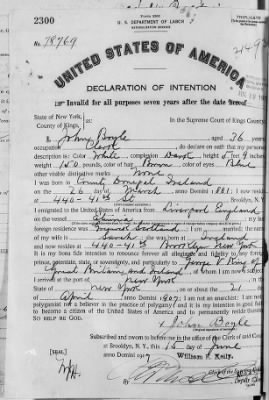 2300
Form 2203
U. S. DEPARTMENT OF LABOR
NATURALIZATION SERVICE
No. 78769
UNITED STATES OF AMERICA
DECLARATION OF INTENTION
Invalid for all purposes seven years after the date hereof
State of New York,
County of Kings,
In the Supreme Court of Kings County.
I, John Boyle aged 36 years,
occupation Clerk, do declare on oath that my personal
description is: Color White, complexion Dark, height 5 feet 9 inches,
weight 150 pounds, color of hair Brown, color of eyes Blue
other visible distinctive marks None
I was born in County Donegal Ireland
on the 26 day of March, anno Domini 1881; I now reside
at 440-41st Brooklyn, N.Y.
I emigrated to the United States of America from Liverpool England
on the vessel; my last
foreign residence was Scotland; I am married; the name
of my wife is Sarah; she was born in Ireland
and now resides at 440-41st Brooklyn New York
It is my bona fide intention to renounce forever all allegiance and fidelity to any foreign
prince, potentate, state, or sovereignty, and particularly to George V King of
Great Britain and Ireland, of whom I am now a subject;
I arrived at the port of New York, in the
State of New York, on or about the 21 day
of April, anno Domini 1907; I am not an anarchist; I am not a
polygamist nor a believer in the practice of polygamy; and it is my intention in good faith
to become a citizen of the United States of America and to permanently reside therein:
SO HELP ME GOD.
John Boyle
Subscribed and sworn to before me in the office of the Clerk of said Court
at Brooklyn, N. Y., this 15 day of June
anno Domini 1917
[SEAL]
William F. Kelly,
Clerk of the Supreme Court.
By
Deputy Clerk